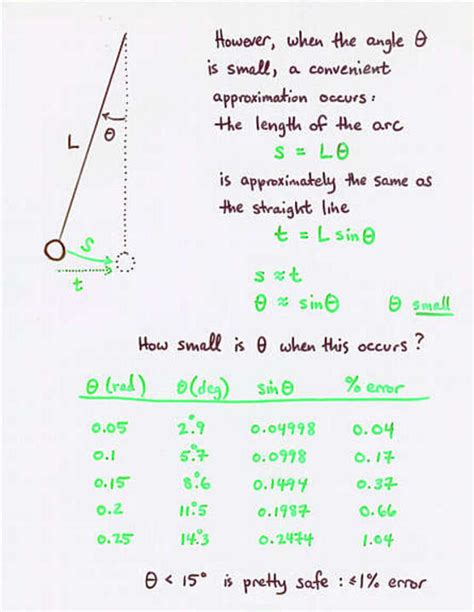 However, when the angle θ
is small, a convenient
approximation occurs:
the length of the arc
s = Lθ
is approximately the same as
the straight line
t = L sinθ
s ≈ t
θ ≈ sinθ θ small
L
θ
s
t
How small is θ when this occurs?
θ (rad) θ(deg) sinθ % error
0.05 2.9° 0.04998 0.04
0.1 5.7° 0.0998 0.17
0.15 8.6° 0.1494 0.37
0.2 11.5° 0.1987 0.66
0.25 14.3° 0.2474 1.04
θ < 15° is pretty safe : ≤1% error